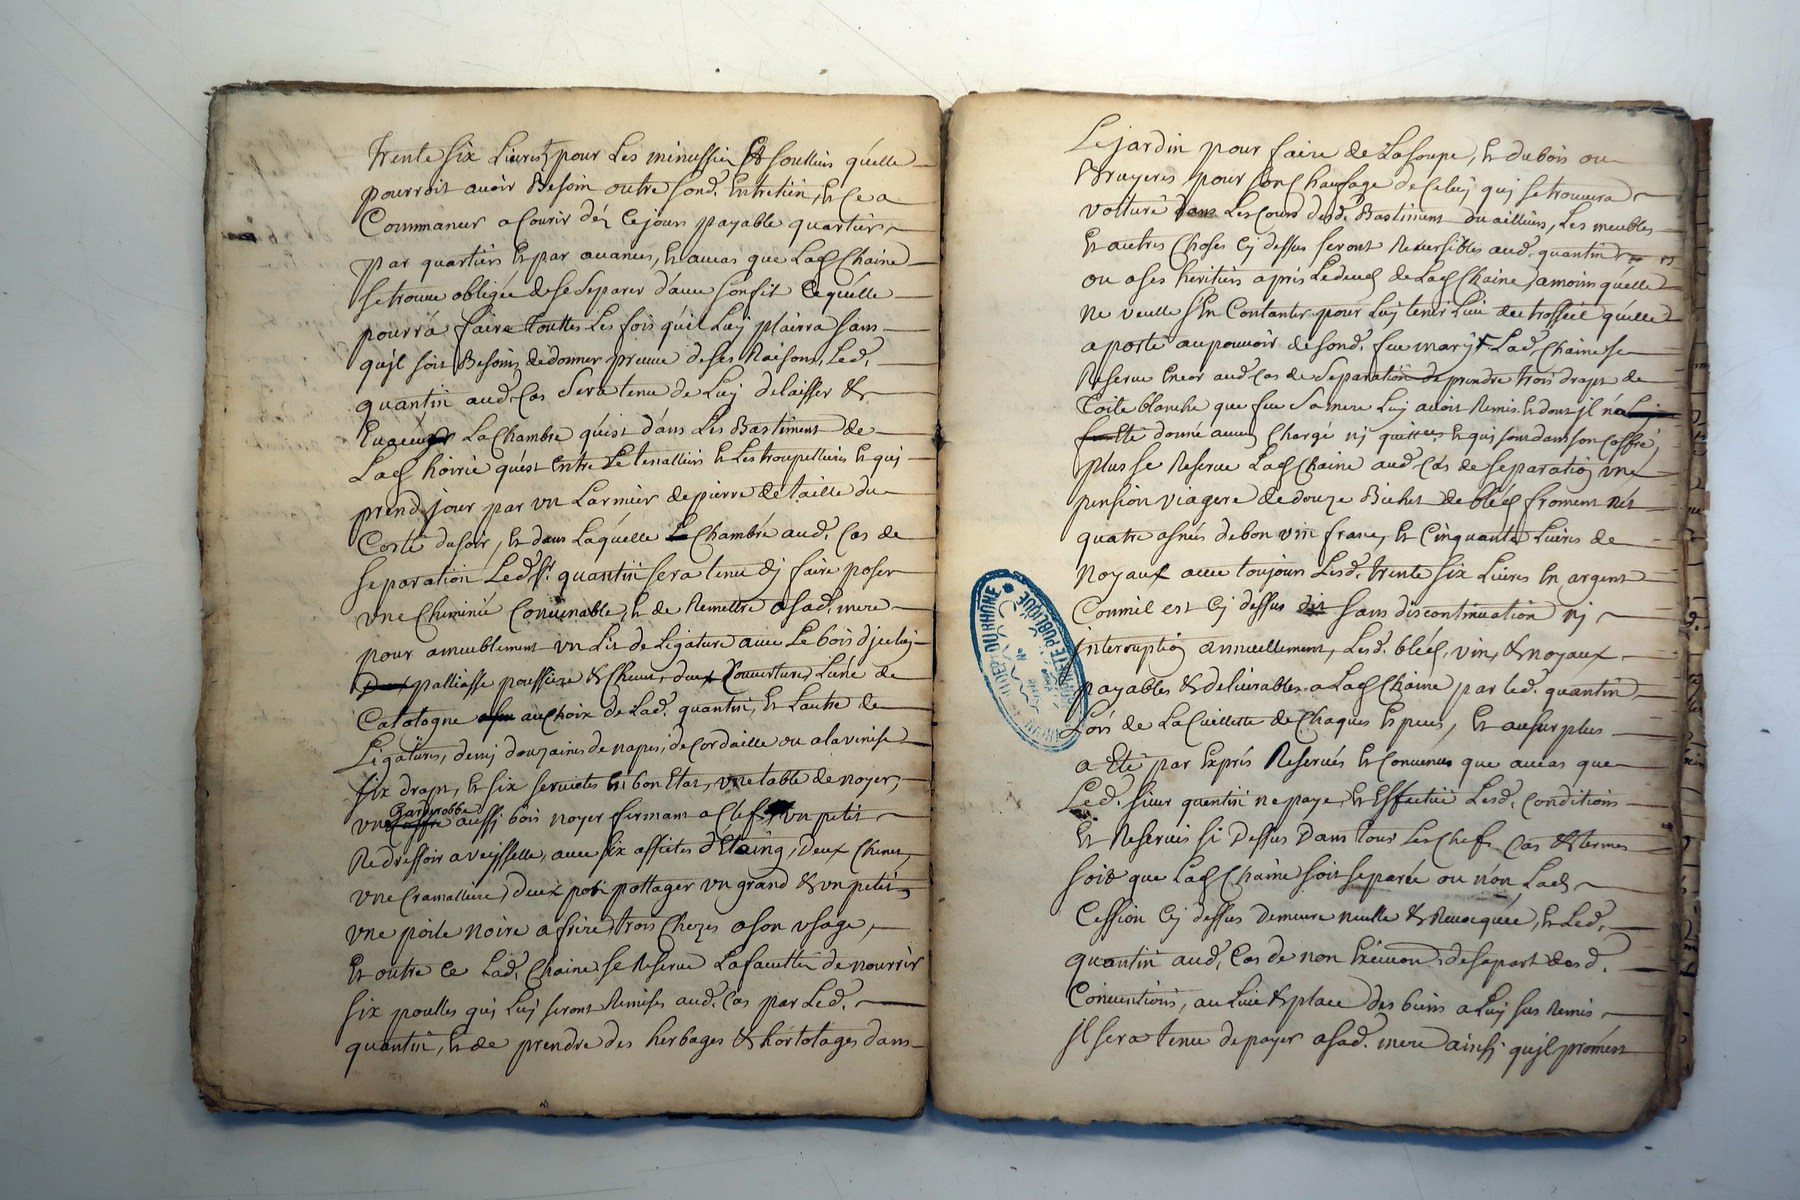 trente six Livres pour Les minussien Et soulliers qu'elle
pourroit auoir Besoin outre sond. Entretien, Et ce a
Commancer a Courir déz Ce jours payable quartier
par quartiers Et par auance, Et aucas que Lad Chaine
se trouue obligée de se separer d'auec son fils Ce qu'elle
pourra faire touttes Les fois qu'il Luy plairra sans
qu'jl soit Besoin de donner preuue de ses Raisons, Led.
quantin aud. Cas Sera tenu de Luy delaisser &
La Chambre qu'est d'ans Les Bastiment de
Lad hoirie qu'est Entre Le tenallier & Les troupelliers Et qui
prend jour par vn Larmier de pierre de taille du
Costé du soir, Et dans Laquelle Chambre aud. Cas de
separation Led. Sr. quantin sera tenu dy faire poser
vne Cheminée Conuenable, Et de Remettre a sad. mere
pour ameublement vn Lit de Ligature auec Le bois d'jceluy
palliasse poussiere & Cheuet, deux Couuertures, L'une de
Catalogne au Choix de Lad. quantin, Et Lautre de
Ligatures, demy douzaines de napes, de Cordaille ou a la vinise
six draps, Et six seruietes En bon Etat, vne table de noyer,
Garderobbe
vne aussi bois noyer fermant a Clef, vn petit
Redressoir a veisselle, auec six assietes d'Etaing, Deux Chenet,
vne Cramalliere, deux pots pottager vn grand & vn petit,
vne poile noire a frire, trois Chezes a son vsage,
Et outre ce Lad. Chaine se Reserue La facultté de nourrir
six poulles qui Luy seront Remises aud. Cas par Led.
quantin, Et de prendre des herbages & hortolages dans
Le jardin pour faire de La soupe, Et du bois ou
Bruyeres pour son Chaufage de Celuy qui se trouuera
voituré dans Les Cours desd. Bastiment ou ailliurs, Les meubles
Et autres Choses Cy dessus seront Reuersibles aud. quantin
ou a ses heritiers aprés Le deces de Lad Chaine, a moins qu'elle
ne veulle s'En Contanter pour Luy tenir Lieu du trosseil qu'elle
a porté au pouuoir de sond. feu mary, Lad. Chaine se
Reserue Encor aud. Cas de Separation de prendre trois draps de
toile blanche que feu Sa mere Luy auoit Remis Et dont jl n'a
donné aucun Chargé ny quittces, Et qui sont dans son Coffre,
plus se Reserue Lad Chaine aud. Cas de separation vne
pension viagere de douze Bichet de bléd froment net
quatre asnés de bon vin franc, Et Cinquante Liures de
Noyaux auec toujours Lesd. trente six Liures En argent
Comme il est Cy dessus dit sans discontinuation ny
interruption annuellement, Lesd. bléd, vin, & noyaux
payables & deliurables a Lad Chaine par Led. quantin
Lors de La Cuillette de Chaques Especes, Et au surplus
a Eté par Exprés Reserués Et Conuenus que aucas que
Led. sieur quantin ne paye, Et Effectue Lesd. Conditions
Et Reserues si Dessus Dans tous Les Chefs Cas & termes
soit que Lad Chaine soit separée ou non Lad
Cession Cy dessus demeure nulle & Reuocquée, Et Led.
quantin aud. Cas de non Exécution de sa part desd.
Conuentions, au Lieu & place des biens a Luy sus Remis
jl sera tenu de payer a sad. mere ainsy qu'jl promest
DU RHONE
PROPRIETE PUBLIQUE